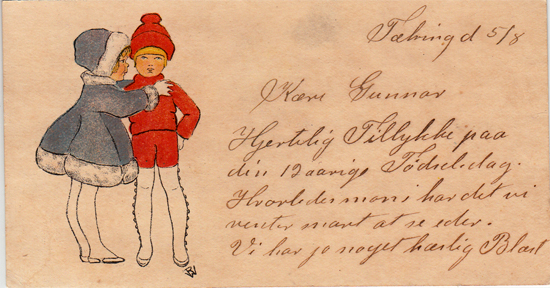 Tæbring d 5/8
Kære Gunnar
Hjertelig Tillykke paa
din 12 aarige Fødselsdag.
Hvorledes mon i har det vi
venter snart at se eder.
Vi har jo noget hærlig Blæst